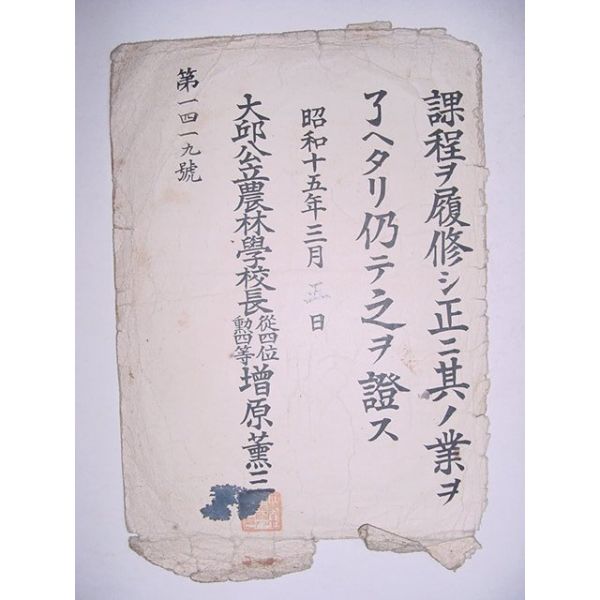 課程ヲ履修シ正ニ其ノ業ヲ
了ヘタリ仍テ之ヲ證ス
昭和十五年三月 五日
大邱公立農林學校長從四位勲四等增原薫三
第一四一九號